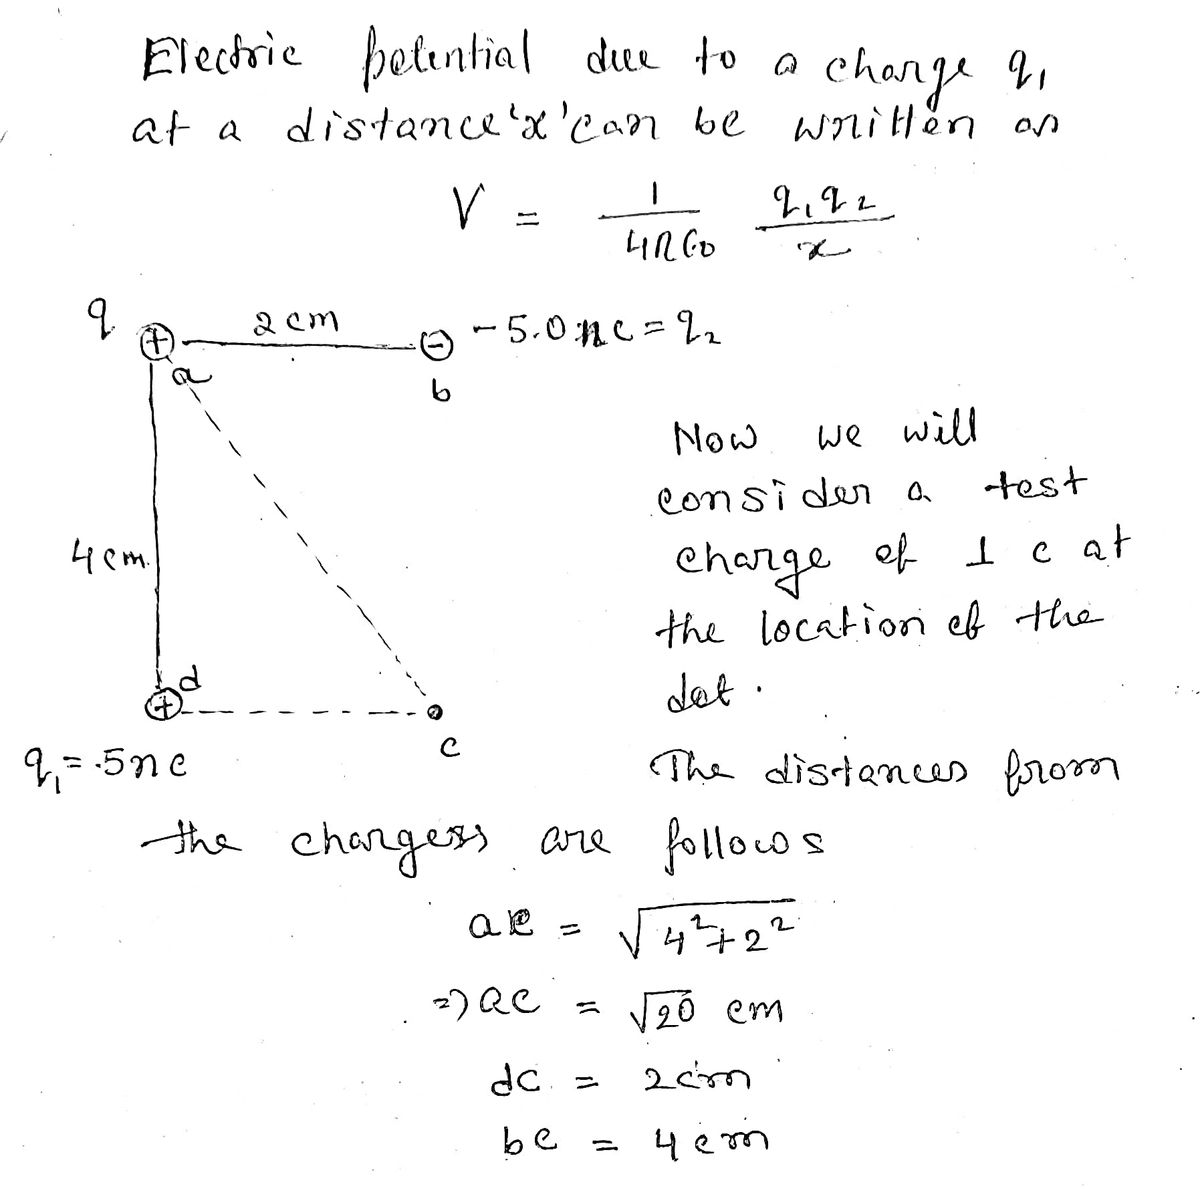 Electric potential due to a charge q₁
at a distance 'x' can be written as
V = 1/4πϵ₀ q₁q₂/x
q + 2cm - -5.0nc = q₂
a b
Now we will
consider a test
4cm.
charge of 1 c at
the location of the
d
dot.
+
c
q₁=.5nc
The distances from
the chargess are follows
ac = √4²+2²
=> ac = √20 cm
dc = 2cm
bc = 4cm